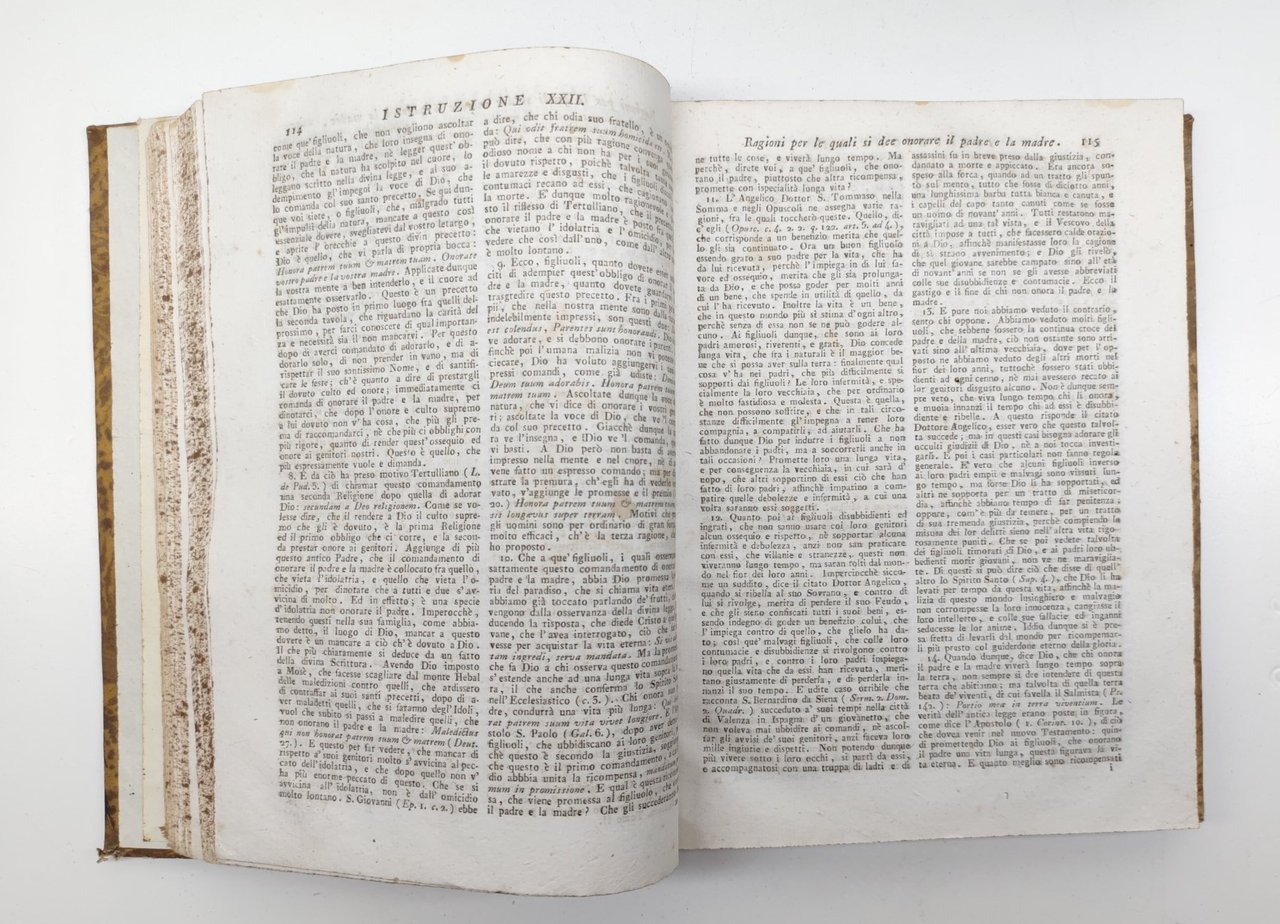 114
ISTRUZIONE XXII.
come que' figliuoli, che non vogliono ascoltar
la voce della natura, che loro insegna di ono-
rare il padre e la madre, nè legger quest' ob-
bligo, che la natura ha scolpito nel cuore, lo
leggano scritto nella divina legge, e al suo a-
dempimento gl'impegni la voce di Dio, che
lo comanda col suo santo precetto. Se qui dun-
que voi siete, o figliuoli, che, malgrado tutti
gl'impulsi della natura, mancate a questo così
essenziale dovere, svegliatevi dal vostro letargo,
e aprite l'orecchie a questo divin precetto:
Dio è quello, che vi parla di propria bocca:
Honora patrem tuum & matrem tuam. Onorate
vostro padre la vostra madre. Applicate dunque
la vostra mente a ben intenderlo, e il cuore ad
esattamente osservarlo. Questo è un precetto
che Dio ha posto in primo luogo fra quelli del-
la seconda tavola, che riguardano la carità del
prossimo, per farci conoscere di qual importan-
za e necessità sia il non mancarvi. Per questo
dopo di averci comandato di adorarlo, e di a-
dorarlo solo, di non prender in vano, ma di
rispettar il suo santissimo Nome, e di santifi-
care le feste; ch'è quanto a dire di prestargli
il dovuto culto ed onore; immediatamente ci
comanda di onorare il padre e la madre, per
dinotarci, che dopo l'onore e culto supremo
a lui dovuto non v'ha cosa, che più gli pre-
ma di raccomandarci, nè che più ci obblighi con
più rigore, quanto di render quest'ossequio ed
onore ai genitori nostri. Questo è quello, che
più espressamente vuole e dimanda.
8. E da ciò ha preso motivo Tertulliano (L.
de Pud. 5.) di chiamar questo comandamento
una seconda Religione dopo quella di adorar
Dio: secundam a Deo religionem. Come se vo-
lesse dire, che il rendere a Dio il culto supre-
mo che gli è dovuto, è la prima Religione
ed il primo obbligo che ci corre, e la secon-
da prestar onore ai genitori. Aggiunge di più
questo antico Padre, che il comandamento di
onorare il padre e la madre è collocato fra quello,
che vieta l'idolatria, e quello che vieta l'o-
micidio, per dinotare che a tutti e due s'av-
vicina di molto. Ed in effetto; è una specie
d'idolatria non onorare il padre. Imperocchè,
tenendo questi nella sua famiglia, come abbia-
mo detto, il luogo di Dio, mancar a questo
dovere è un mancare a ciò ch'è dovuto a Dio.
Il che più chiaramente si deduce da un fatto
della divina Scrittura. Avendo Dio imposto
a Mosè, che facesse scagliare dal monte Hebal
delle maledizioni contro quelli, che ardissero
di contraffar ai suoi santi precetti, dopo di a-
ver maladetti quelli, che si faranno degl'Idoli,
vuol che subito si passi a maledire quelli, che
non onorano il padre e la madre: Maledictus
qui non honorat patrem suum & matrem (Deut.
27.). E questo per far vedere, che mancar di
rispetto a' suoi genitori molto s'avvicina al pec-
cato dell'idolatria, e che dopo quello non v'
ha più enorme peccato di questo. Che se si
avvicina all'idolatria, non è dall'omicidio
molto lontano. S. Giovanni (Ep. 1. c. 2.) ebbe
a dire, che chi odia suo fratello, è un
da: Qui odit fratrem suum homicida est
può dire, che con più ragione converga
odioso nome a chi non ha per i suoi
il dovuto rispetto, poichè talvolta
le amarezze e disgusti, che i figliuoli
contumaci recano ad essi, che cagionano
la morte. E' dunque molto ragionevole
sto il riflesso di Tertulliano, che il
onorare il padre e la madre è posto fra
che vietano l'idolatria e l'omicidio, per
vedere che così dall'uno, come dall'altro
è molto lontano.
9. Ecco, figliuoli, quanto dovete esser
citi di adempier quest'obbligo di onorar il
dre e la madre, quanto dovete guardarvi
trasgredire questo precetto. Fra i primi
pii, che nella nostra mente sono dalla
indelebilmente impressi, son questi due:
est colendus, Parentes sunt honorandi.
ve adorare, e si debbono onorare i parenti.
finchè poi l'umana malizia non vi potesse
ciecare, Dio ha voluto aggiungervi i
pressi comandi, come già udiste:
Deum tuum adorabis. Honora patrem tuum
matrem tuam. Ascoltate dunque la voce
natura, che vi dice di onorare i vostri
ri; ascoltate la voce di Dio, che ve 'l
da col suo precetto. Giacchè dunque la
ra ve l'insegna, e Dio ve 'l comanda,
vi basti. A Dio però non basta di averlo
impresso nella mente e nel cuore, nè di
vene fatto un espresso comando; ma per
strare la premura, ch'egli ha di vederlo
vato, v'aggiunge le promesse e il premio
20.) Honora patrem tuum & matrem tuam
sis longævus super terram. Motivi che
gli uomini sono per ordinario di gran forza
molto efficaci, ch'è la terza ragione,
ho proposto.
10. Che a que' figliuoli, i quali osservano
sattamente questo comandamento di onorare
padre e la madre, abbia Dio promessa la
ria del paradiso, che si chiama vita eterna
abbiamo già toccato parlando de' frutti,
vengono dalla osservanza della divina legge
ducendo la risposta, che diede Cristo a quel
vane, che l'avea interrogato, ciò che
vesse per acquistar la vita eterna: Si vis
tam ingredi, serva mandata. Ma la promessa
che fa Dio a chi osserva questo comandamento
s'estende anche ad una lunga vita sopra
ra, il che anche confermò lo Spirito Santo
nell'Ecclesiastico (c. 3.). Chi onora suo
dre, condurrà una vita più lunga: Qui
rat patrem suum vita vivet longiore. E l'
stolo S. Paolo (Gal. 6.), dopo aver
figliuoli, che ubbidiscano ai loro genitori,
che questo è secondo la giustizia, soggiunge
che questo è il primo comandamento,
dio abbia unita la ricompensa, mandatum
mum in promissione. E qual è questa
sa, che viene promessa al figliuolo, che
il padre e la madre? Che gli succederanno
Ragioni per le quali si dee onorare il padre e la madre. 115
ne tutte le cose, e viverà lungo tempo. Ma
perchè, direte voi, a que' figliuoli, che ono-
rano il padre, piuttosto che altra ricompensa,
promette con ispecialità lunga vita?
11. L'Angelico Dottor S. Tommaso nella
Somma e negli Opuscoli ne assegna varie ra-
gioni, fra le quali toccherò queste. Quello, di-
c'egli (Opusc. c. 4. 2. 2. q. 122. art. 5. ad 4.),
che corrisponde a un benefizio merita che quel-
lo gli sia continuato. Ora un buon figliuolo
essendo grato a suo padre per la vita, che ha
da lui ricevuta, perchè l'impiega in di lui fa-
vore ed ossequio, merita che gli sia prolunga-
ta da Dio, e che possa goder per molti anni
di un bene, che spende in utilità di quello, da
cui l'ha ricevuto. Inoltre la vita è un bene,
che in questo mondo più si stima d'ogni altro,
perchè senza di essa non se ne può godere al-
cuno. Ai figliuoli dunque, che sono ai loro
padri amorosi, riverenti, e grati, Dio concede
lunga vita, che fra i naturali è il maggior be-
ne che si possa aver sulla terra: finalmente qual
cosa v'ha nei padri, che più difficilmente si
sopporti dai figliuoli? Le loro infermità, e spe-
cialmente la loro vecchiaia, che per ordinario
è molto fastidiosa e molesta. Questa è quella,
che non possono soffrire, e che in tali circo-
stanze difficilmente gl'impegna a tener loro
compagnia, a compatirli, ad aiutarli. Che ha
fatto dunque Dio per indurre i figliuoli a non
abbandonare i padri, ma a soccorrerli anche in
tali occasioni? Promette loro una lunga vita,
e per conseguenza la vecchiaia, in cui sarà d'
uopo, che altri sopportino di essi ciò che han
fatto di loro padri, affinchè impatino a com-
patire quelle debolezze e infermità, a cui una
volta saranno essi soggetti.
12. Quanto poi ai figliuoli disubbidienti ed
ingrati, che non sanno usare coi loro genitori
alcun ossequio e rispetto, nè sopportar alcuna
infermità e debolezza, anzi non san praticare
con essi, che villanie e stranezze, questi non
viveranno lungo tempo, ma saran tolti dal mon-
do nel fior dei loro anni. Impercioccè sicco-
me un suddito, dice il citato Dottor Angelico,
quando si ribella al suo Sovrano, e contro di
lui si rivolge, merita di perdere il suo Feudo,
e che gli sieno confiscati tutti i suoi beni, es-
sendo indegno di goder un benefizio colui, che
l'impiega contro di quello, che glielo ha da-
to; così que' malvagi figliuoli, che colle loro
contumacie e disubbidienze si rivolgono contro
i loro padri, e contro i loro padri impiega-
no quella vita che da essi han ricevuta, meri-
tano giustamente di perderla, e di perderla in-
nanzi il suo tempo. E udite caso orribile che
racconta S. Bernardino da Siena (Serm. 2. Dom.
2. Quadr.) succeduto a' suoi tempi nella città
di Valenza in Ispagna d'un giovanetto, che
non voleva mai ubbidire ai comandi, nè ascol-
tar gli avvisi de' suoi genitori, anzi faceva loro
mille ingiurie e dispetti. Non potendo dunque
più vivere sotto i loro occhi, si partì da essi,
e accompagnatosi con una truppa di ladri e di
assassini fu in breve preso dalla giustizia, con-
dannato a morte e appiccato. Era ancora so-
speso alla forca, quando ad un tratto gli spun-
tò sul mento, tutto che fosse di diciotto anni,
una lunghissima barba tutta bianca e canuta, e
i capelli del capo tanto canuti come se fosse
un uomo di novant'anni. Tutti restarono ma-
ravigliati ad una tal vista, e il Vescovo della
città impose a tutti, che facessero calde orazio-
ni a Dio, affinchè manifestasse loro la cagione
di sì strano avvenimento; e Dio gli rivelò,
che quel giovane sarebbe campato sino all'età
di novant'anni se non se gli avesse abbreviati
colle sue disubbidienze e contumacie. Ecco il
gastigo e il fine di chi non onora il padre e la
madre.
13. E pure noi abbiamo veduto il contrario,
sento chi oppone. Abbiamo veduto molti figliuo-
li, che sebbene fossero la continua croce del
padre e della madre, ciò non ostante sono arri-
vati sino all'ultima vecchiaia, dove per l'op-
posto ne abbiamo veduto degli altri morti nel
fior dei loro anni, tuttochè fossero stati ubbi-
dienti ad ogni cenno, nè mai avessero recato ai
lor genitori disgusto alcuno. Non è dunque sem-
pre vero, che viva lungo tempo chi li onora,
e muoia innanzi il tempo chi ad essi è disubbi-
diente e ribelle. A questo risponde il citato
Dottore Angelico, esser vero che questo talvol-
ta succede; ma in questi casi bisogna adorare gli
occulti giudizj di Dio, nè a noi tocca investi-
garli. E poi i casi particolari non fanno regola
generale. E' vero che alcuni figliuoli inverso
ai loro padri empii e malvagi sono vissuti lun-
go tempo, ma forse Dio li ha sopportati, ed
altri ne sopporta per un tratto di misericor-
dia, affinchè abbiano tempo di far penitenza,
oppure, com'è più da temere, per un tratto
di sua tremenda giustizia, perchè compiendo la
misura dei lor delitti sieno nell'altra vita rigo-
rosamente puniti. Che se poi vedete talvolta
dei figliuoli timorati di Dio, e ai padri loro ub-
bidienti morir giovani, non ve ne maraviglia-
te. Di questi si può dire ciò che disse di quell'
altro lo Spirito Santo (Sap. 4.), che Dio li ha
levati per tempo da questa vita, affinchè la ma-
lizia di questo mondo lusinghiero e malvagio
non corrompesse la loro innocenza, cangiasse il
loro intelletto, e colle sue fallacie ed inganni
seducesse le lor anime. Iddio dunque si è pre-
sa fretta di levarli dal mondo per ricompensar-
li più presto col guiderdone eterno della gloria.
14. Quando dunque, dice Dio, che chi onora
il padre e la madre viverà lungo tempo sopra
la terra, non sempre si dee intendere di questa
terra che abitiamo; ma talvolta di quella terra
beata de' viventi, di cui favella il Salmista (Ps.
142.): Portio mea in terra viventium. Le
verità dell'antica legge erano poste in figura,
come dice l'Apostolo (1. Corint. 10.), di ciò
che dovea venir nel nuovo Testamento: quin-
di promettendo Dio ai figliuoli, che onorano
il padre una vita lunga, questa figurava la vi-
ta eterna. E quanto meglio sono ricompensati